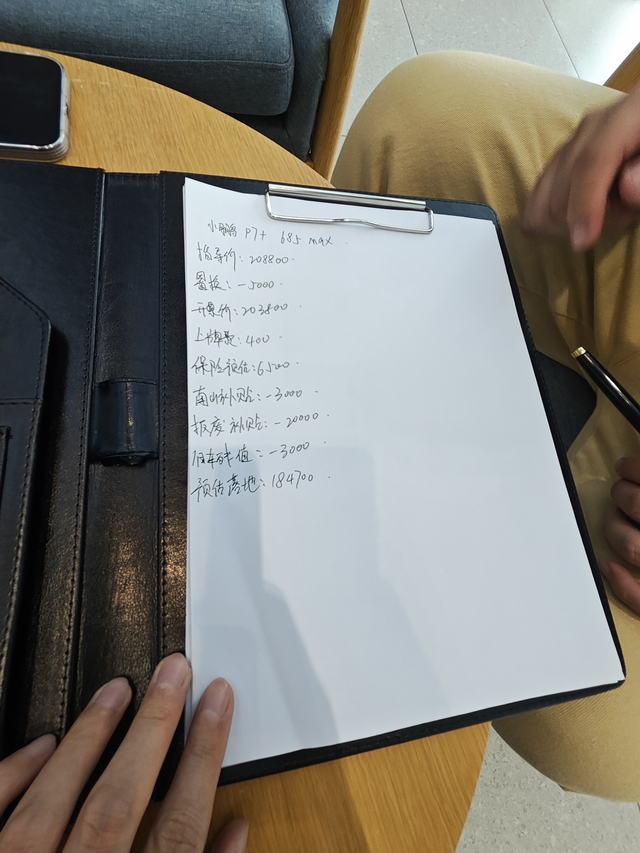 小鹏 P7+ 685 max.
指导价: 208800.
置换: -5000.
开票价: 203800.
上牌费: 400.
保险预估: 6500.
南山补贴: -3000.
报废补贴: -20000.
旧车残值: -3000.
预估落地: 184700.